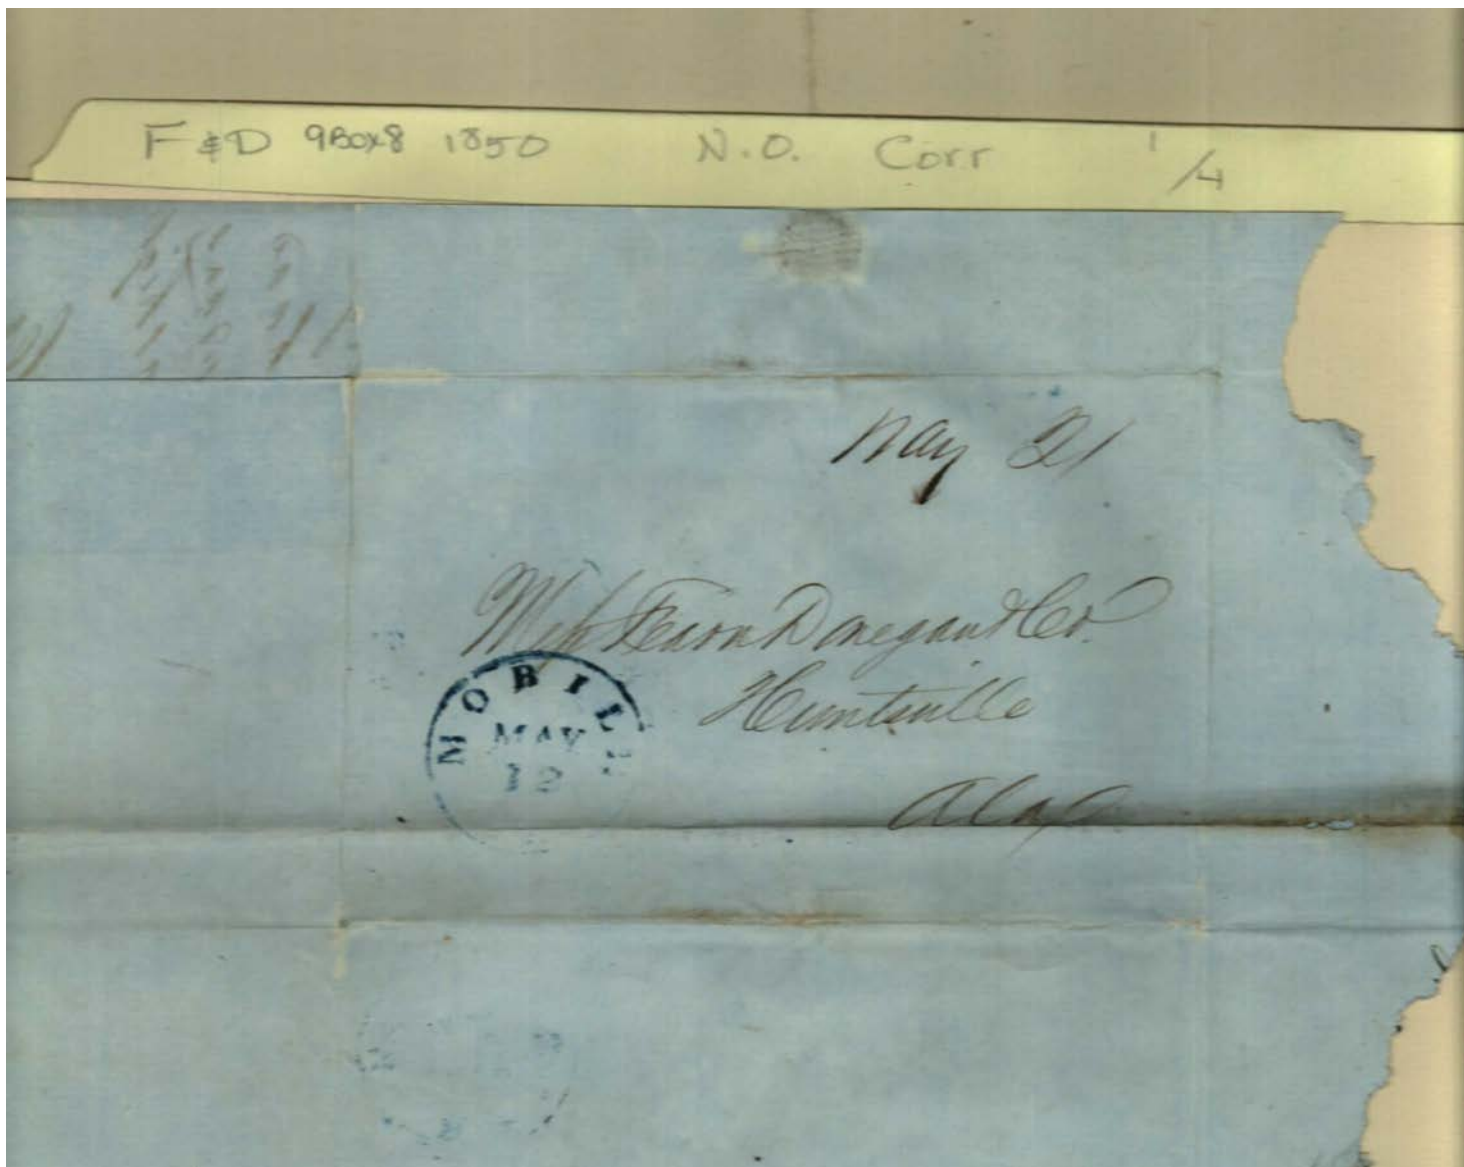 F & D 9Box8 1850 N.O. Corr 1/4
May 21
Mess Fearn Donegan & Co.
Huntsville
Ala
MOBILE
MAY
12